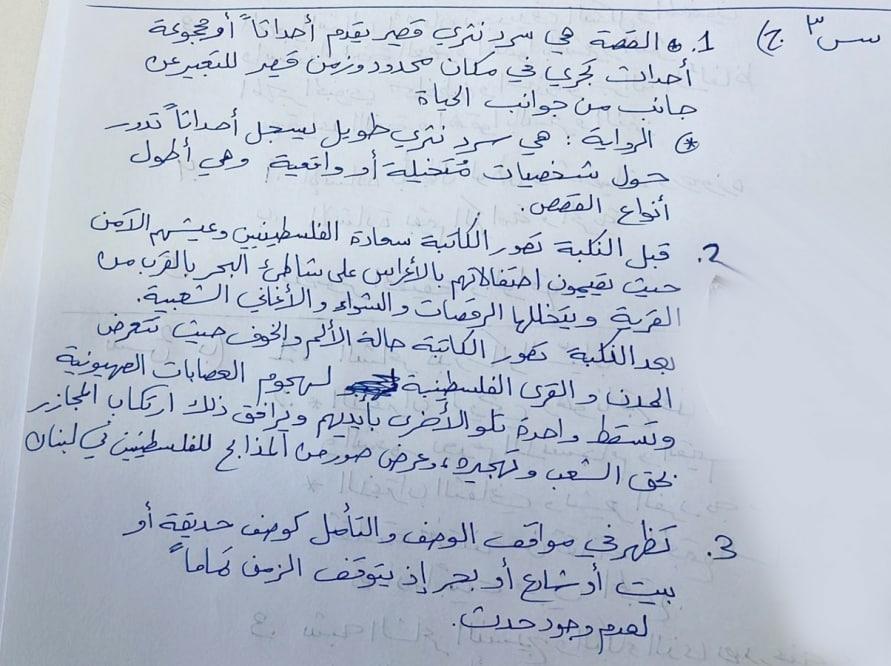 س٣ ج) 1. * القصة هي سرد نثري قصير يقدم أحداثاً أو مجموعة
أحداث تجري في مكان محدود وزمن قصير للتعبير عن
جانب من جوانب الحياة
* الرواية : هي سرد نثري طويل يسجل أحداثاً تدور
حول شخصيات مُتخيلة أو واقعية وهي أطول
أنواع القصص.
2. قبل النكبة تصور الكاتبة سعادة الفلسطينيين وعيشهم الآمن
حيث يقيمون احتفالاتهم بالأعراس على شاطئ البحر بالقرب من
القرية ويتخللها الرقصات والشواء والأغاني الشعبية.
بعد النكبة تصور الكاتبة حالة الألم والخوف حيث تتعرض
المدن والقرى الفلسطينية لهجوم العصابات الصهيونية
وتسقط واحدة تلو الأخرى بأيديهم ويرافق ذلك ارتكاب المجازر
بحق الشعب وتهجيره، وعرض صور من المذابح للفلسطينيين في لبنان
3. تظهر في مواقف الوصف والتأمل كوصف حديقة أو
بيت أو شارع أو بحر إذ يتوقف الزمن تماماً
لعدم وجود حدث.